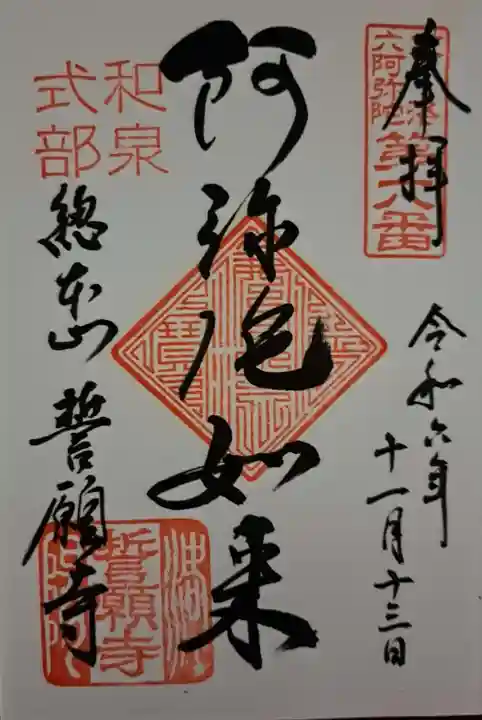 奉拝
六阿弥陀
第六番
令和六年
十一月十三日
阿弥陀如来
和泉
式部
総本山 誓願寺
誓願寺